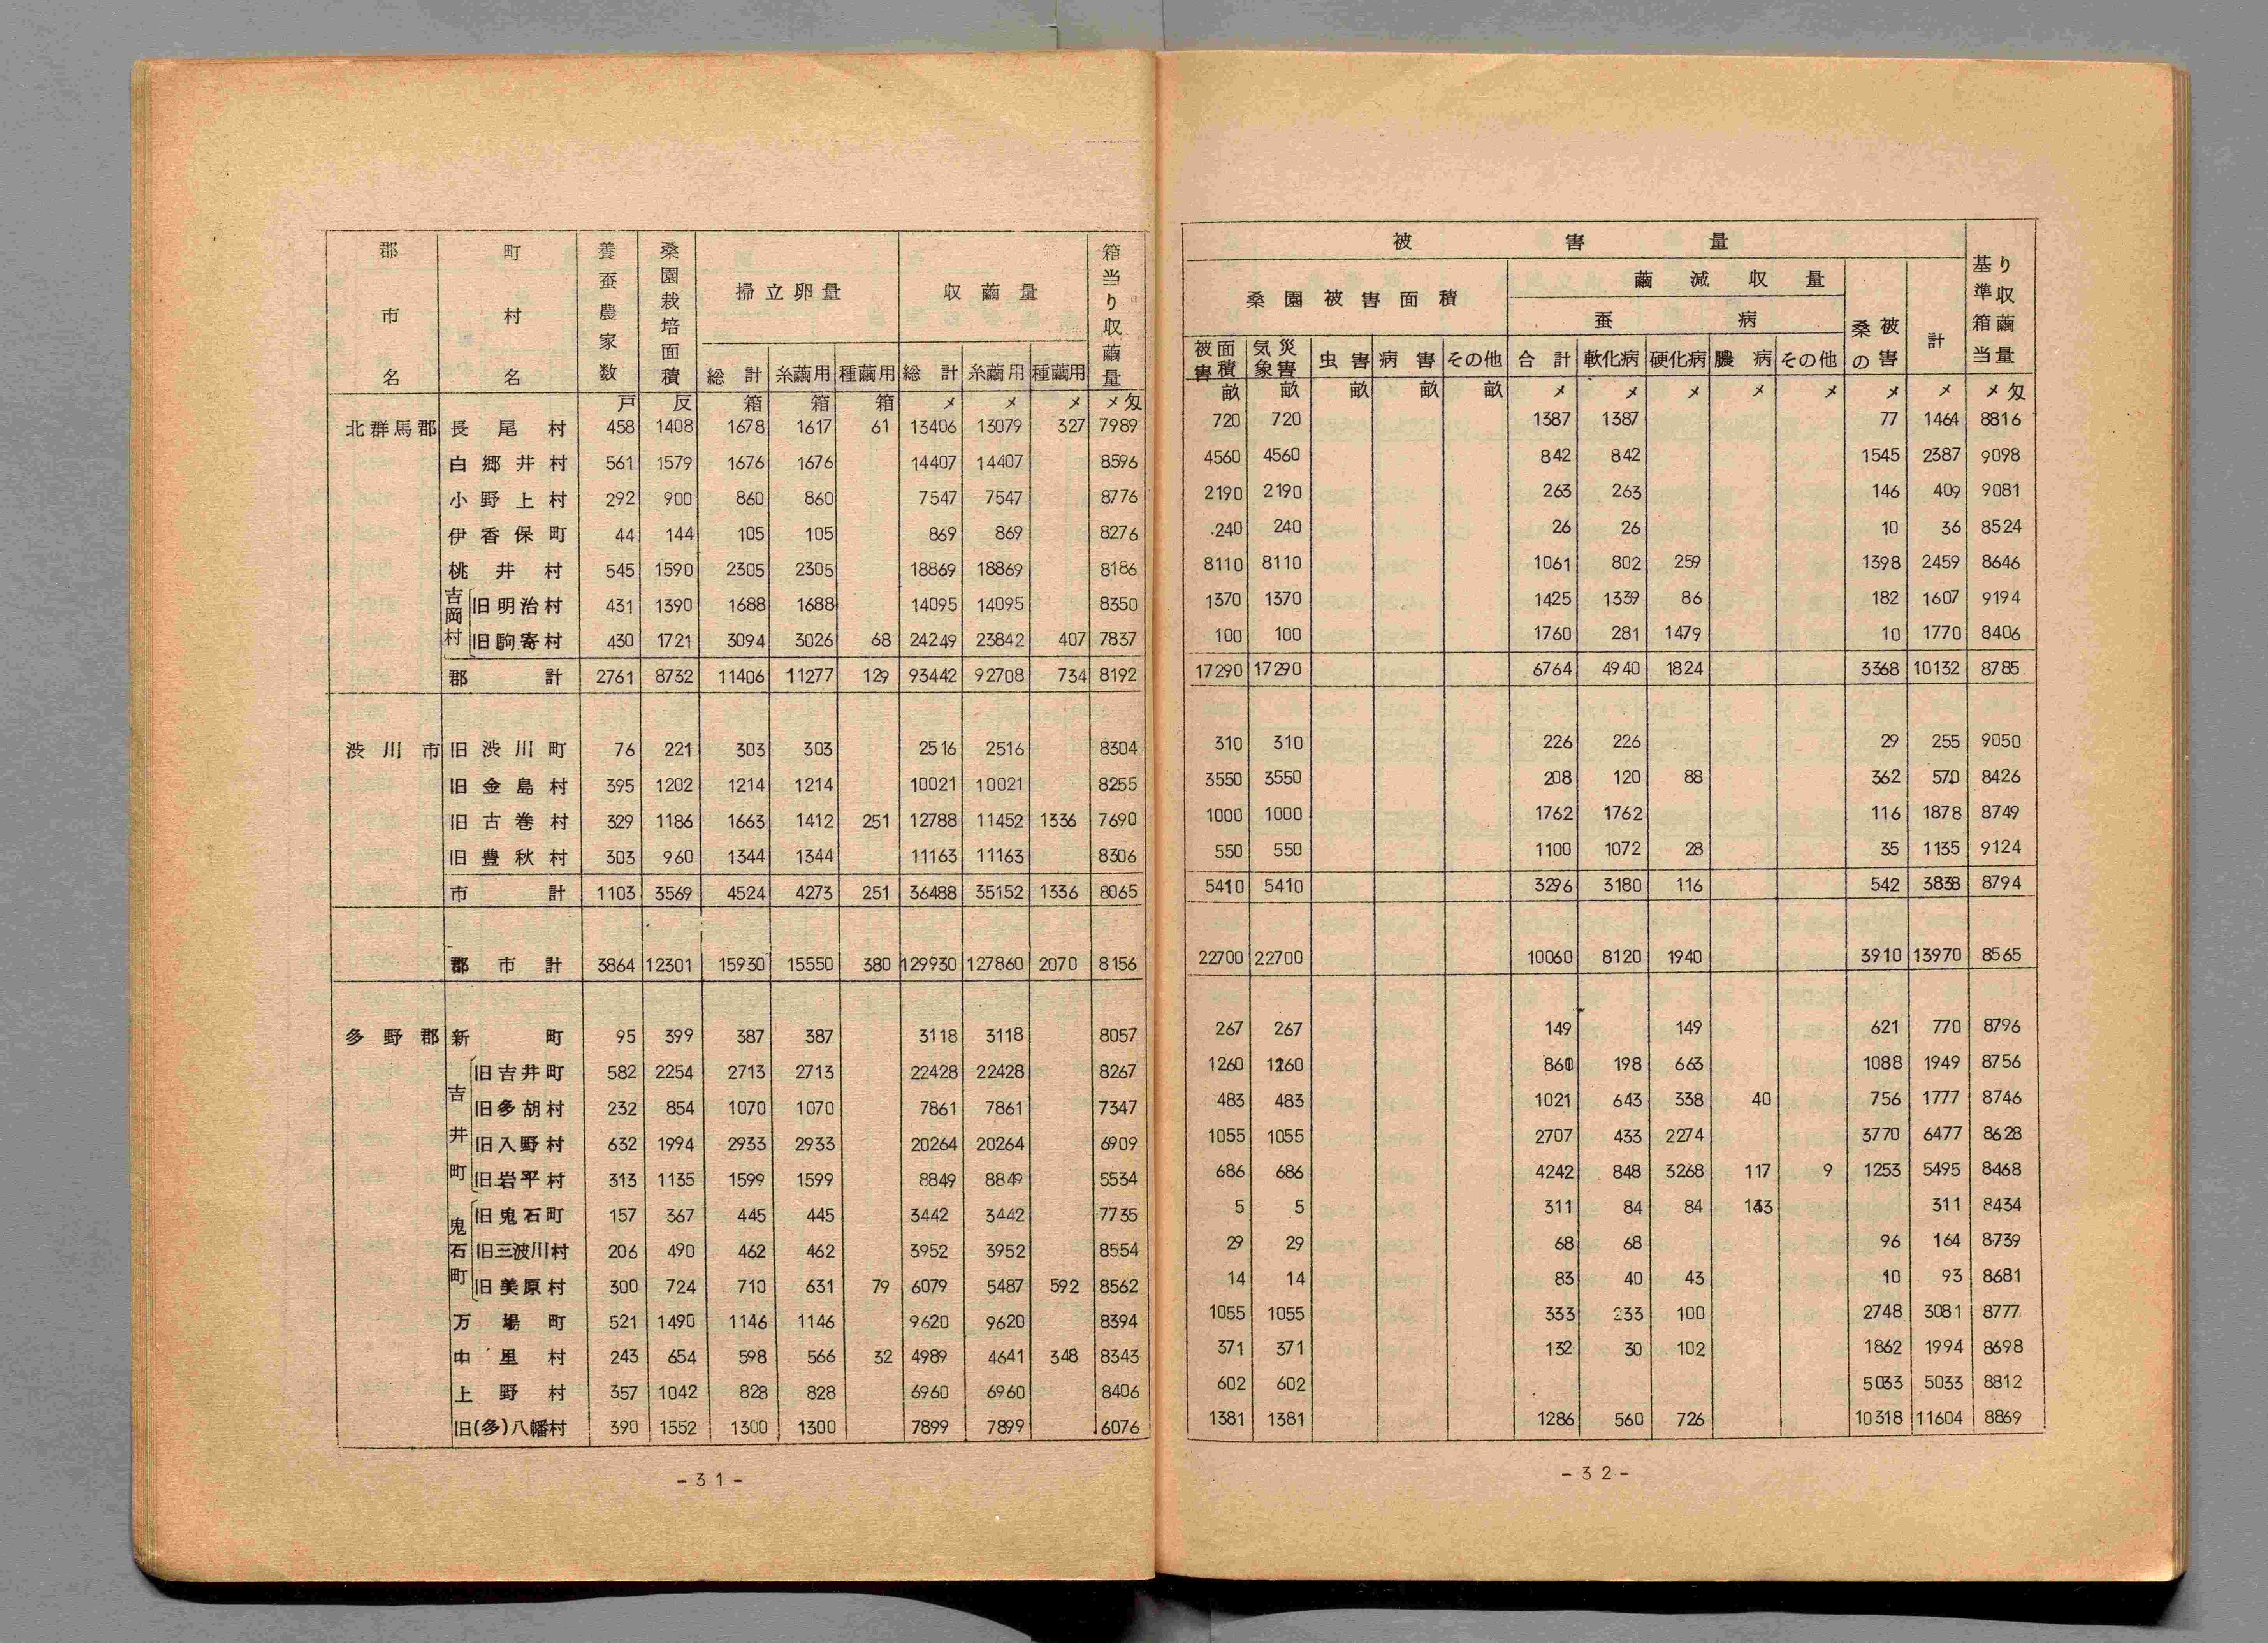 郡市名 町村名 養蚕農家数 桑園栽培面積 掃立卵量 収繭量 箱当り収繭量
総計 糸繭用 種繭用 総計 糸繭用 種繭用
戸 反 箱 箱 箱 メ メ メ メ匁
北群馬郡 長尾村 458 1408 1678 1617 61 13406 13079 327 7989
白郷井村 561 1579 1676 1676 14407 14407 8596
小野上村 292 900 860 860 7547 7547 8776
伊香保町 44 144 105 105 869 869 8276
桃井村 545 1590 2305 2305 18869 18869 8186
吉岡村 旧明治村 431 1390 1688 1688 14095 14095 8350
旧駒寄村 430 1721 3094 3026 68 24249 23842 407 7837
郡計 2761 8732 11406 11277 129 93442 92708 734 8192
渋川市 旧渋川町 76 221 303 303 2516 2516 8304
旧金島村 395 1202 1214 1214 10021 10021 8255
旧古巻村 329 1186 1663 1412 251 12788 11452 1336 7690
旧豊秋村 303 960 1344 1344 11163 11163 8306
市計 1103 3569 4524 4273 251 36488 35152 1336 8065
郡市計 3864 12301 15930 15550 380 129930 127860 2070 8156
多野郡 新町 95 399 387 387 3118 3118 8057
吉井町 旧吉井町 582 2254 2713 2713 22428 22428 8267
旧多胡村 232 854 1070 1070 7861 7861 7347
旧入野村 632 1994 2933 2933 20264 20264 6909
旧岩平村 313 1135 1599 1599 8849 8849 5534
鬼石町 旧鬼石町 157 367 445 445 3442 3442 7735
旧三波川村 206 490 462 462 3952 3952 8554
旧美原村 300 724 710 631 79 6079 5487 592 8562
万場町 521 1490 1146 1146 9620 9620 8394
中里村 243 654 598 566 32 4989 4641 348 8343
上野村 357 1042 828 828 6960 6960 8406
旧(多)八幡村 390 1552 1300 1300 7899 7899 6076
-31-
被害量 基準箱当り収繭量
桑園被害面積 繭減収量 計
蚕病 桑の被害
被害面積 気象災害 虫害 病害 その他 合計 軟化病 硬化病 膿病 その他
畝 畝 畝 畝 畝 メ メ メ メ メ メ メ メ匁
720 720 1387 1387 77 1464 8816
4560 4560 842 842 1545 2387 9098
2190 2190 263 263 146 409 9081
240 240 26 26 10 36 8524
8110 8110 1061 802 259 1398 2459 8646
1370 1370 1425 1339 86 182 1607 9194
100 100 1760 281 1479 10 1770 8406
17290 17290 6764 4940 1824 3368 10132 8785
310 310 226 226 29 255 9050
3550 3550 208 120 88 362 570 8426
1000 1000 1762 1762 116 1878 8749
550 550 1100 1072 28 35 1135 9124
5410 5410 3296 3180 116 542 3838 8794
22700 22700 10060 8120 1940 3910 13970 8565
267 267 149 149 621 770 8796
1260 1260 861 198 663 1088 1949 8756
483 483 1021 643 338 40 756 1777 8746
1055 1055 2707 433 2274 3770 6477 8628
686 686 4242 848 3268 117 9 1253 5495 8468
5 5 311 84 84 143 311 8434
29 29 68 68 96 164 8739
14 14 83 40 43 10 93 8681
1055 1055 333 233 100 2748 3081 8777
371 371 132 30 102 1862 1994 8698
602 602 5033 5033 8812
1381 1381 1286 560 726 10318 11604 8869
-32-